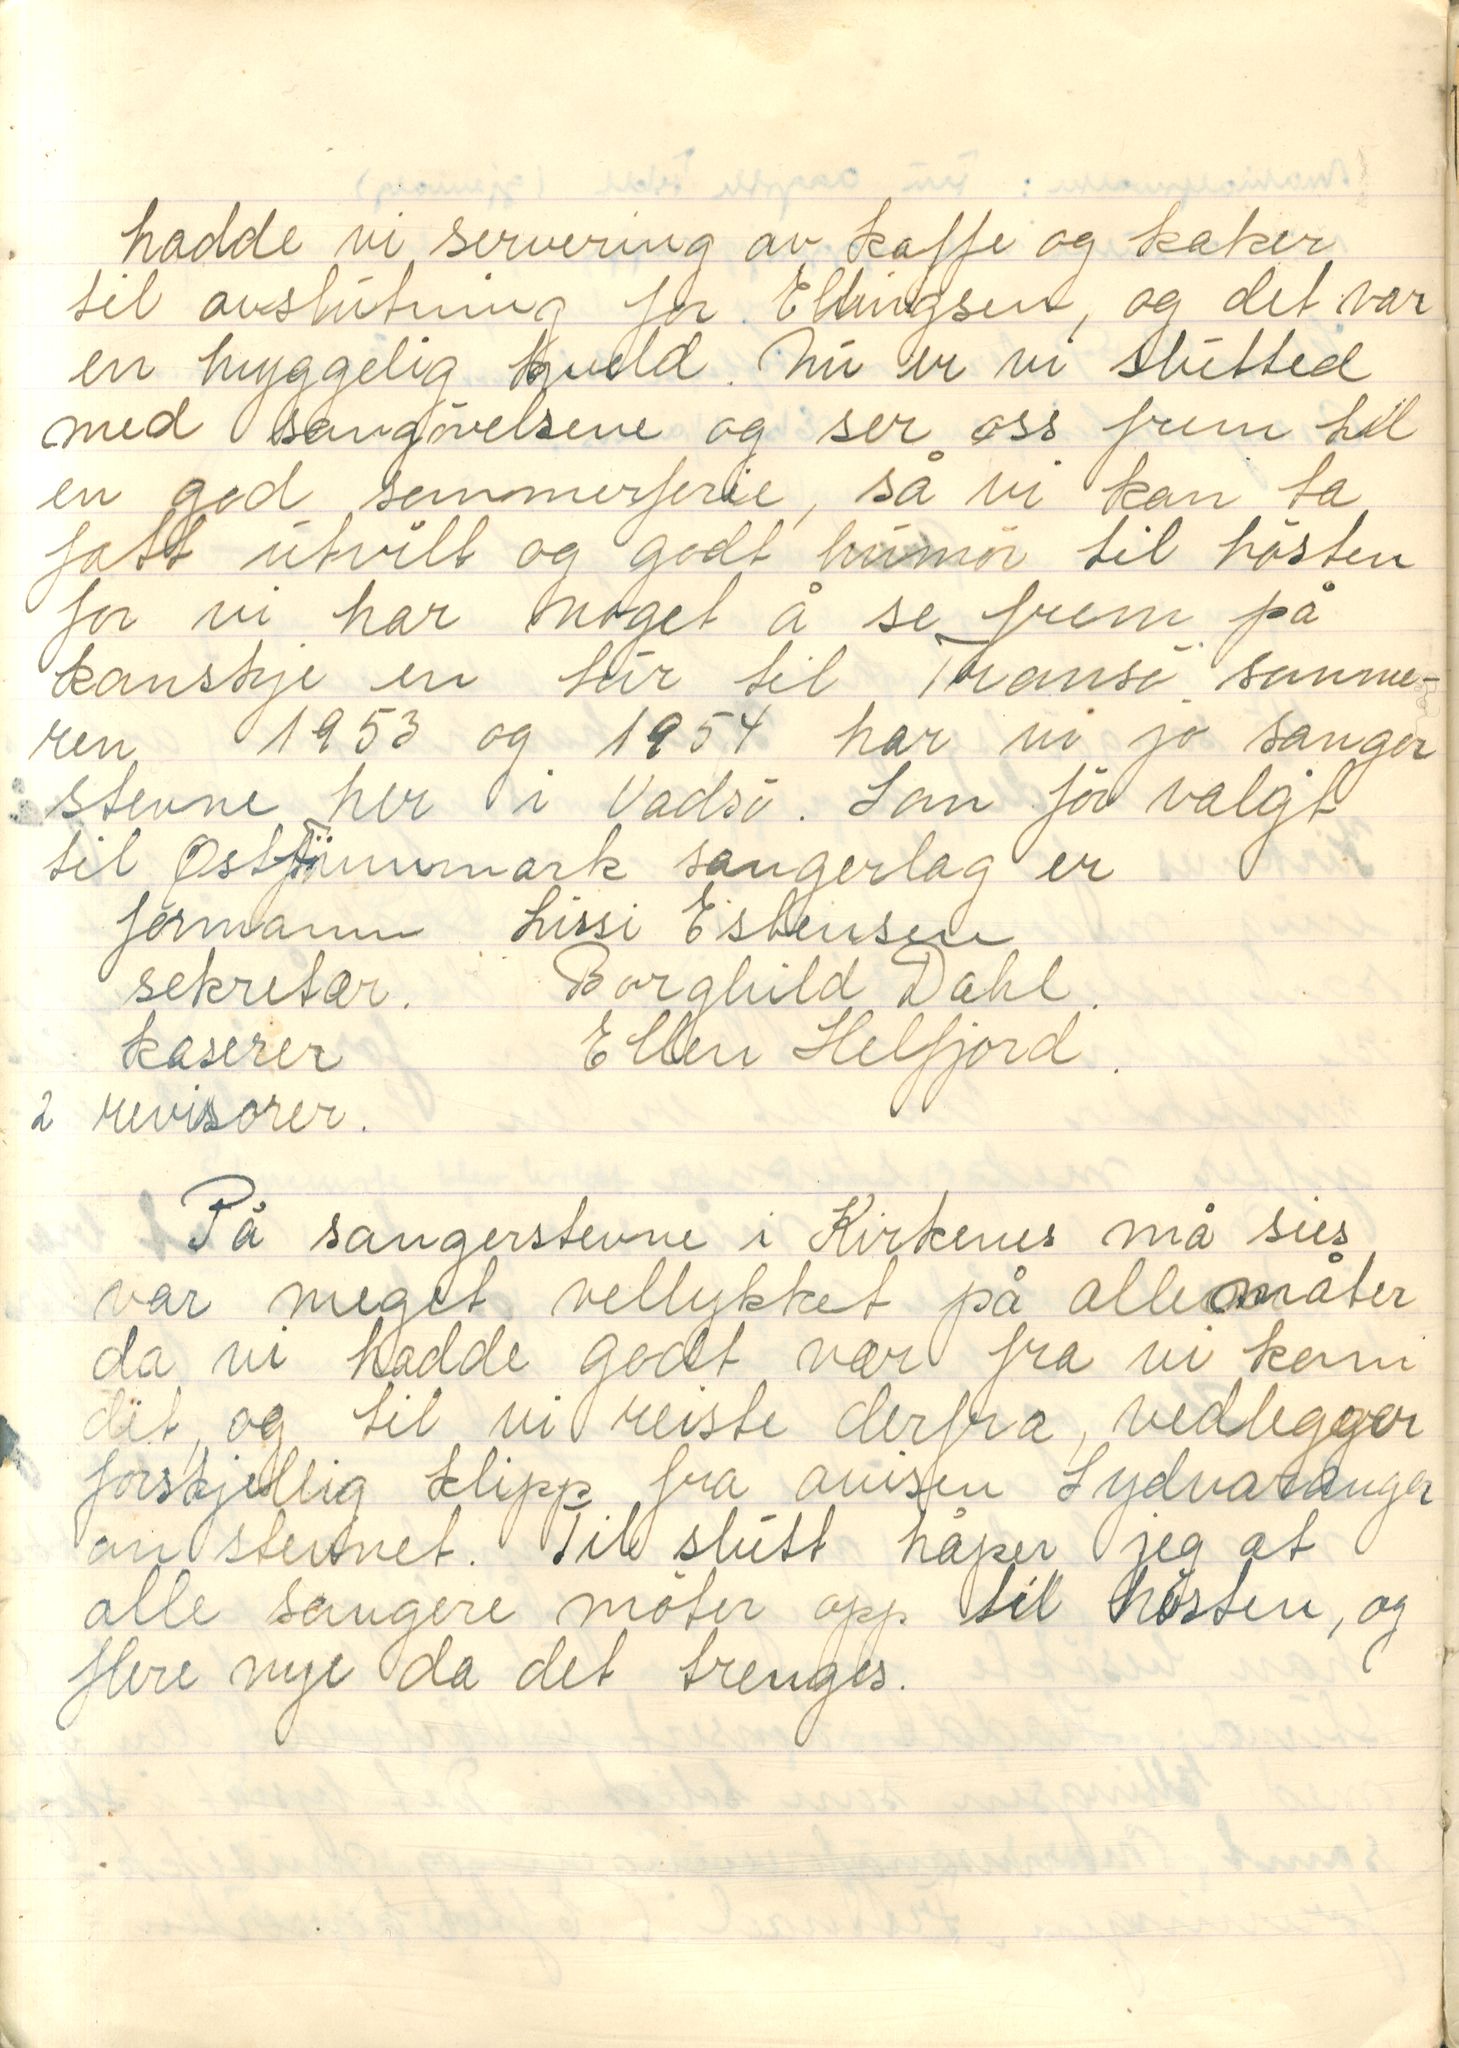 hadde vi servering av kaffe og kaker
til avslutning for Ellingsen, og det var
en hyggelig kveld. Nu er vi slutted
med sangövelsene og ser oss frem til
en god sommerferie, så vi kan ta
fatt utvilt og godt humör til hösten
for vi har noget å se frem på
kanskje en tur til Tromsö somme-
ren 1953 og 1954 har vi jo sanger
stevne her i Vadsö. Som för valgt
til Østfinnmark sangerlag er
formann Lissi Eistensen
sekretær. Borghild Dahl.
kaserer Ellen Helfjord.
2 revisorer.
På sangerstevne i Kirkenes må sies
var meget vellykket på alle måter
da vi hadde godt vær fra vi kom
dit, og til vi reiste derfra, vedlegger
forskjellig klipp fra avisen Sydvaranger
om stevnet. Til slutt håper jeg at
alle sangere möter opp til hösten, og
flere nye da det trenges.